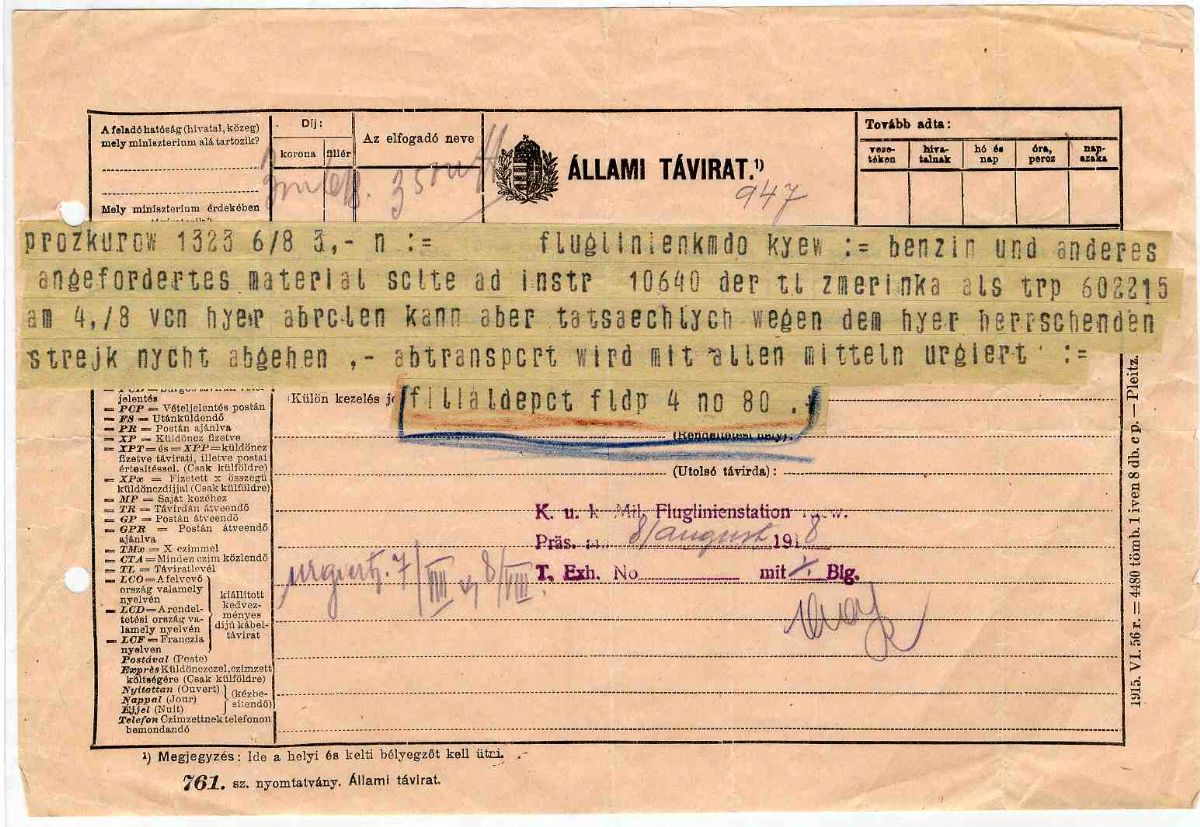 A feladó hatóság (hivatal, közeg)
mely miniszterium alá tartozik?
Mely miniszterium érdekében
Díj:
korona fillér
Az elfogadó neve
ÁLLAMI TÁVIRAT.¹)
947
Tovább adta:
veze-
téken
hiva-
talnak
hó és
nap
óra,
percz
nap-
szaka
prozkurow 1323 6/8 3,- n := fluglinienkmdo kyew := benzin und anderes
angefordertes material sclte ad instr 10640 der tl zmerinka als trp 602215
am 4,/8 vcn hyer abrclen kann aber tatsaechlych wegen dem hyer herrschenden
strejk nycht abgehen ,- abtranspcrt wird mit allen mitteln urgiert :=
filialdepct fldp 4 no 80 .+
jelentés
= PCP = Vételjelentés postán
= FS = Utánküldendő
= PR = Postán ajánlva
= XP = Küldöncz fizetve
= XPT = és = XPP = küldöncz
fizetve távirati, illetve postai
értesítéssel. (Csak külföldre)
= XPx = Fizetett x összegű
küldönczdíjjal (Csak külföldre)
= MP = Saját kezéhez
= TR = Távirdán átveendő
= GP = Postán átveendő
= GPR = Postán átveendő
ajánlva
= TMx = X czimmel
= CTA = Minden czim közlendő
= TL = Táviratlevél
= LCO = A felvevő
ország valamely
nyelvén
= LCD = A rendel-
tetési ország va-
lamely nyelvén
= LCF = Franczia
nyelven
kiállított
kedvez-
ményes
díjú kábel-
távirat
Postával (Poste)
Exprès Küldönczczel, czimzett
költségére (Csak külföldre)
Nyitottan (Ouvert)
Nappal (Jour)
Éjjel (Nuit)
(kézbe-
sítendő)
Telefon Czimzettnek telefonon
bemondandó
(Külön kezelés
(Rendeltetési hely):
(Utolsó távirda):
K. u. k. Mil. Fluglinienstation
Präs. 8/august 1918
T. Exh. No mit Blg.
urgiert. 7/VIII 8/VIII.
1915. VI. 56 r. = 4480 tömb. 1 iven 8 db. c p. — Pleitz.
¹) Megjegyzés: Ide a helyi és kelti bélyegzőt kell ütni.
761. sz. nyomtatvány. Állami távirat.